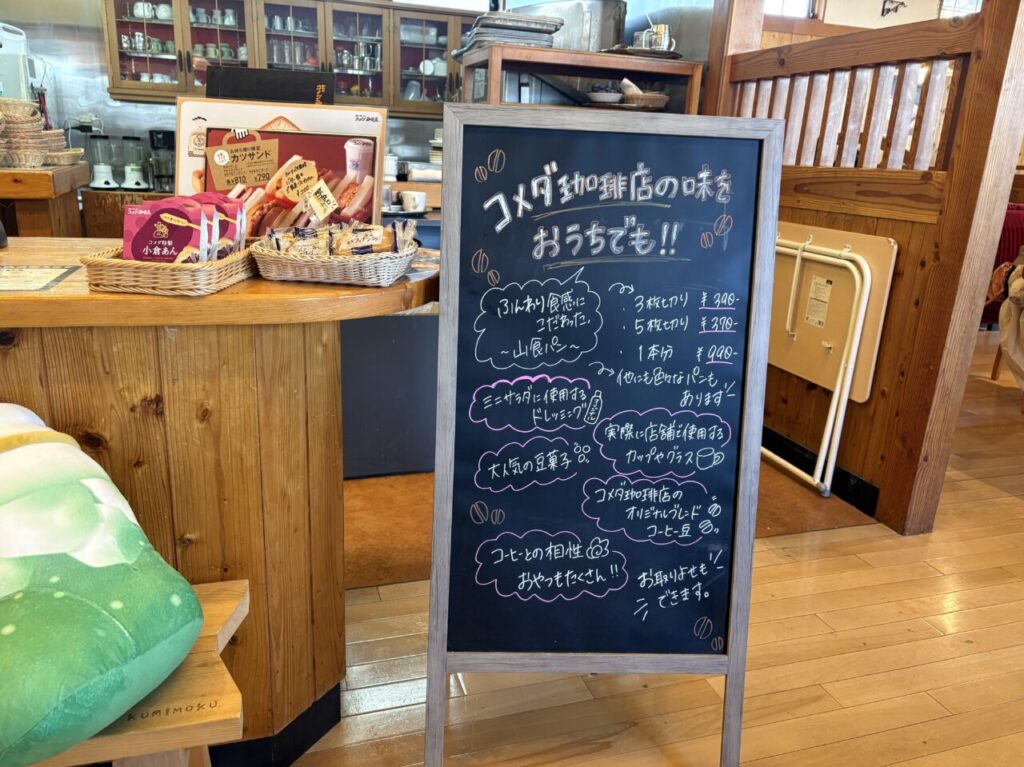 コメダ珈琲店の味を
おうちでも!!
ふんわり食感に
こだわった
～山食パン～
・3枚切り ¥390-
・5枚切り ¥370-
・1本分 ¥990-
他にも色々なパンも
あります
ミニサラダに使用する
ドレッシング
実際に店舗で使用する
カップやグラス
大人気の豆菓子
コメダ珈琲店の
オリジナルブレンド
コーヒー豆
コーヒーとの相性
おやつもたくさん!!
お取りよせも
できます。
カツサンド
¥810
¥790
コメダ特製
小倉あん
KUMIMOKU